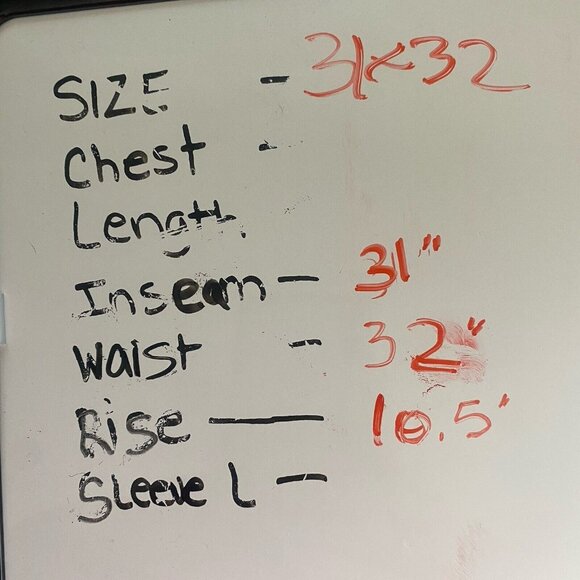 SIZE - 31x32
Chest -
Length
Inseam - 31"
Waist - 32"
Rise - 10.5"
Sleeve L -